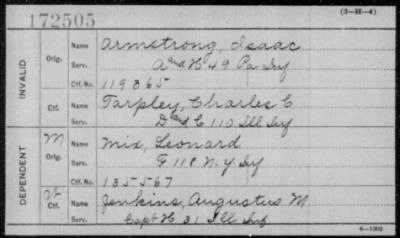 172505
(3—H—4)
INVALID
Orig.
Name Armstrong, Isaac
Serv. A and H 49 Pa Inf
Ctf. No. 119865
Ctf.
Name Tarpley, Charles C
Serv. D and C 110 Ill Inf
DEPENDENT
M
Orig.
Name Mix, Leonard
Serv. F 118 N.Y Inf
Ctf. No. 135567
Ctf.
Name Jenkins, Augustus M
Serv. Capt H 31 Ill Inf